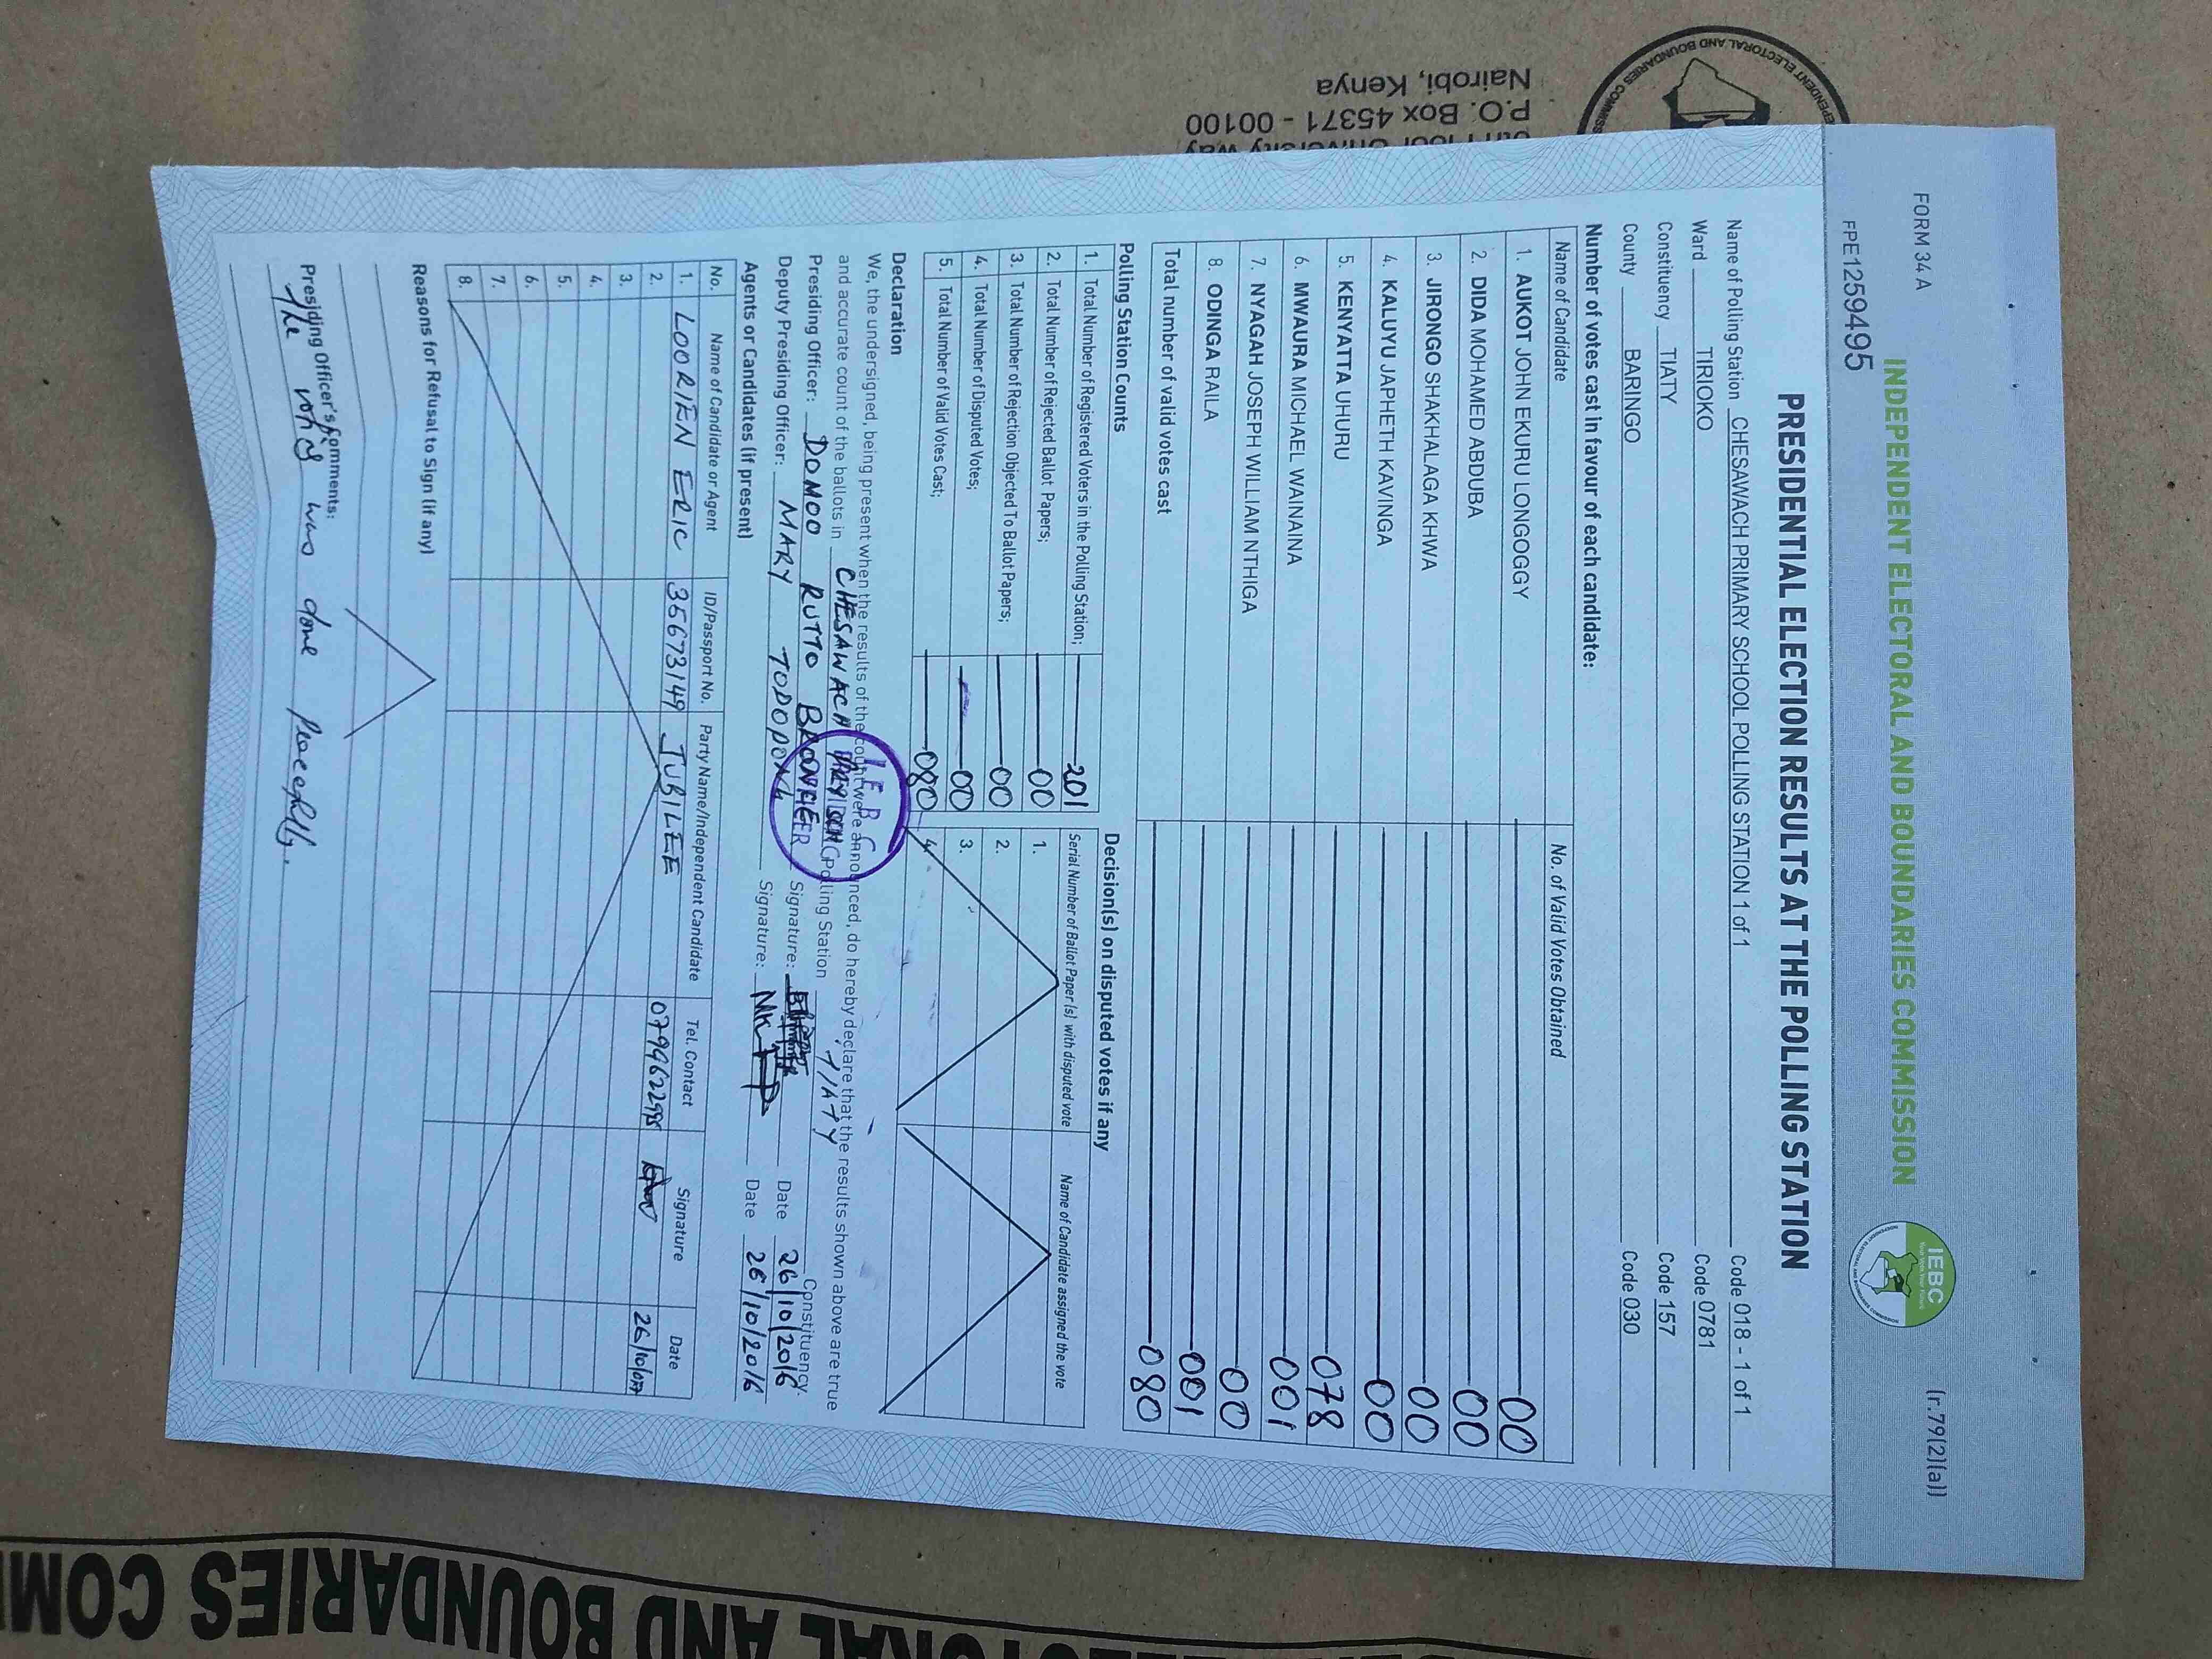 INDEPENDENT ELECTORAL AND BOUNDARIES COMMISSION
P.O. Box 45371 - 00100
Nairobi, Kenya
FORM 34 A
(r.79(2)(a))
FPE1259495
INDEPENDENT ELECTORAL AND BOUNDARIES COMMISSION
IEBC
PRESIDENTIAL ELECTION RESULTS AT THE POLLING STATION
Name of Polling Station CHESAWACH PRIMARY SCHOOL POLLING STATION 1 of 1 Code 018 - 1 of 1
Ward TIRIOKO Code 0781
Constituency TIATY Code 157
County BARINGO Code 030
Number of votes cast in favour of each candidate:
Name of Candidate No. of Valid Votes Obtained
1. AUKOT JOHN EKURU LONGOGGY 00
2. DIDA MOHAMED ABDUBA 00
3. JIRONGO SHAKHALAGA KHWA 00
4. KALUYU JAPHETH KAVINGA 00
5. KENYATTA UHURU 078
6. MWAURA MICHAEL WAINAINA 001
7. NYAGAH JOSEPH WILLIAM NTHIGA 00
8. ODINGA RAILA 001
Total number of valid votes cast 080
Polling Station Counts
1. Total Number of Registered Voters in the Polling Station; 201
2. Total Number of Rejected Ballot Papers; 00
3. Total Number of Rejection Objected To Ballot Papers; 00
4. Total Number of Disputed Votes; 00
5. Total Number of Valid Votes Cast; 080
Decision(s) on disputed votes if any
Serial Number of Ballot Paper(s) with disputed vote Name of Candidate assigned the vote
1.
2.
3.
4.
Declaration
We, the undersigned, being present when the results of the count were announced, do hereby declare that the results shown above are true
and accurate count of the ballots in CHESAWACH PRY SCH Polling Station TIATY Constituency.
Presiding Officer: DOMOO RUTTO Signature: Date 26/10/2016
Deputy Presiding Officer: MARY Signature: Date 26/10/2016
I E B C
Agents or Candidates (if present)
No. Name of Candidate or Agent ID/Passport No. Party Name/Independent Candidate Tel. Contact Signature Date
1. LOORIEN ERIC 35673149 JUBILEE 0799622985 26/10/017
2.
3.
4.
5.
6.
7.
8.
Reasons for Refusal to Sign (if any)
Presiding Officer's Comments:
The voting was done peacefully.
AND BOUNDARIES COM